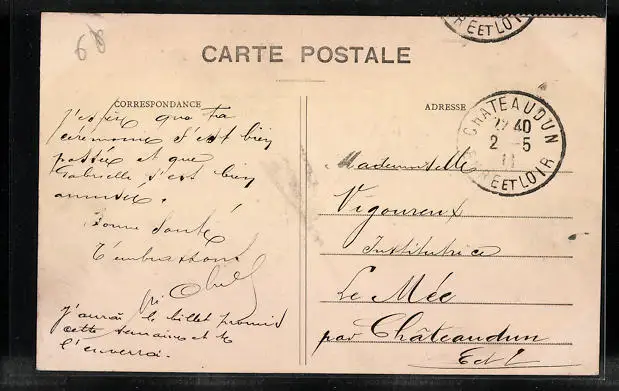 68
CARTE POSTALE
CORRESPONDANCE
ADRESSE
J'espère que ta
cérémonie s'est bien
passée et que
Gabrielle s'est bien
amusée.
Bonne Santé
T'embrassons
J'aurai le billet promis
cette semaine et te
l'enverrai.
RE ET LOI
CHATEAUDUN
22 40
2 -5
11
RE ET LOIR
Mademoiselle
Vigoureux
Institutrice
Le Mée
par Châteaudun
E et L